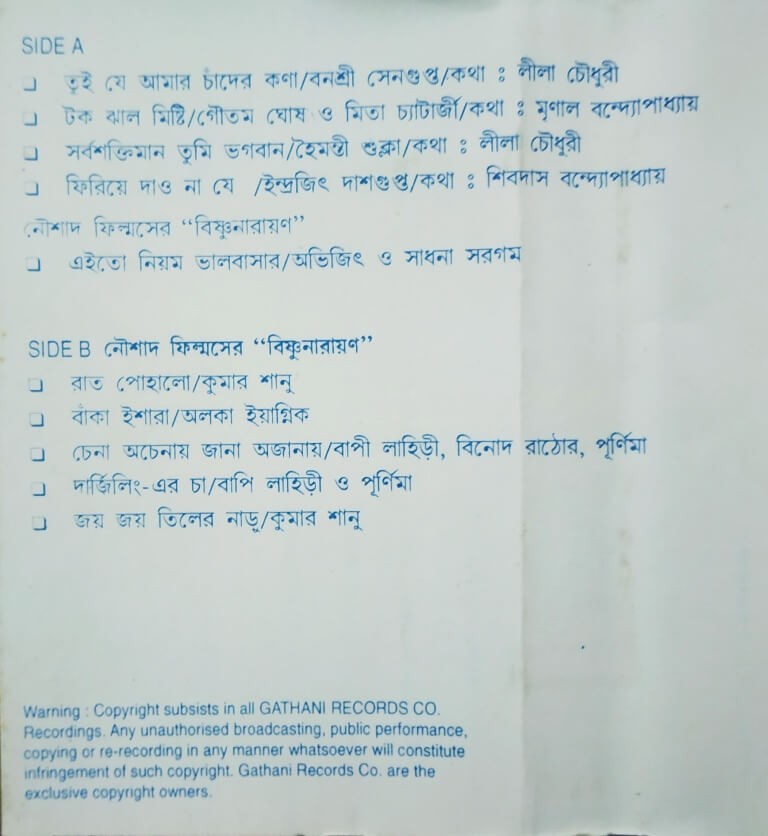 SIDE A
❑ তুই যে আমার চাঁদের কণা/বনশ্রী সেনগুপ্ত/কথা : লীলা চৌধুরী
❑ টক ঝাল মিষ্টি/গৌতম ঘোষ ও মিতা চ্যাটার্জী/কথা : মৃণাল বন্দ্যোপাধ্যায়
❑ সর্বশক্তিমান তুমি ভগবান/হৈমন্তী শুক্লা/কথা : লীলা চৌধুরী
❑ ফিরিয়ে দাও না যে /ইন্দ্রজিৎ দাশগুপ্ত/কথা : শিবদাস বন্দ্যোপাধ্যায়
নৌশাদ ফিল্মসের “বিষ্ণুনারায়ণ”
❑ এইতো নিয়ম ভালবাসার/অভিজিৎ ও সাধনা সরগম
SIDE B নৌশাদ ফিল্মসের “বিষ্ণুনারায়ণ”
❑ রাত পোহালো/কুমার শানু
❑ বাঁকা ইশারা/অলকা ইয়াগ্নিক
❑ চেনা অচেনায় জানা অজানায়/বাপী লাহিড়ী, বিনোদ রাঠোর, পূর্ণিমা
❑ দার্জিলিং-এর চা/বাপি লাহিড়ী ও পূর্ণিমা
❑ জয় জয় তিলের নাড়ু/কুমার শানু
Warning : Copyright subsists in all GATHANI RECORDS CO.
Recordings. Any unauthorised broadcasting, public performance,
copying or re-recording in any manner whatsoever will constitute
infringement of such copyright. Gathani Records Co. are the
exclusive copyright owners.